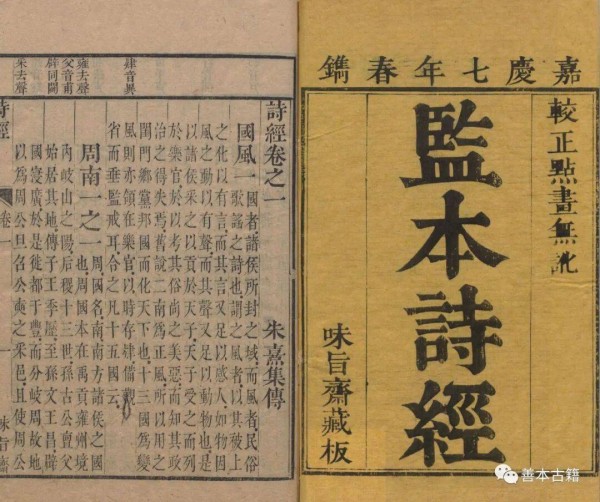 嘉慶七年春鐫
較正點畫無訛
監本詩經
味旨齋藏板
肄音異
雍去聲
父音甫
辟同闢
采去聲
詩經卷之一　朱熹集傳
國風一　國者諸侯所封之域而風者民俗
歌謠之詩也謂之風者以其被上
之化以有言而其言又足以感人如物因
風之動以有聲而其聲又足以動物也是
以諸侯采之以貢於天子天子受之而列
於樂官於以考其俗尚之美惡而知其政
治之得失焉舊說二南為正風所以用之
閨門鄉黨邦國而化天下也十三國為變
風則亦領在樂官以時存肄備觀
省而垂監戒耳合之凡十五國云
周南一之一　周國名南南方諸侯之國
也周國本在禹貢雍州境
內岐山之陽后稷十三世孫古公亶父
始居其地傳子王季歷至孫文王昌辟
國寖廣於是徙都于豐而分岐周故地
以爲周公旦召公奭之采邑且使周公
詩經　卷一　一　味旨齋
善本古籍